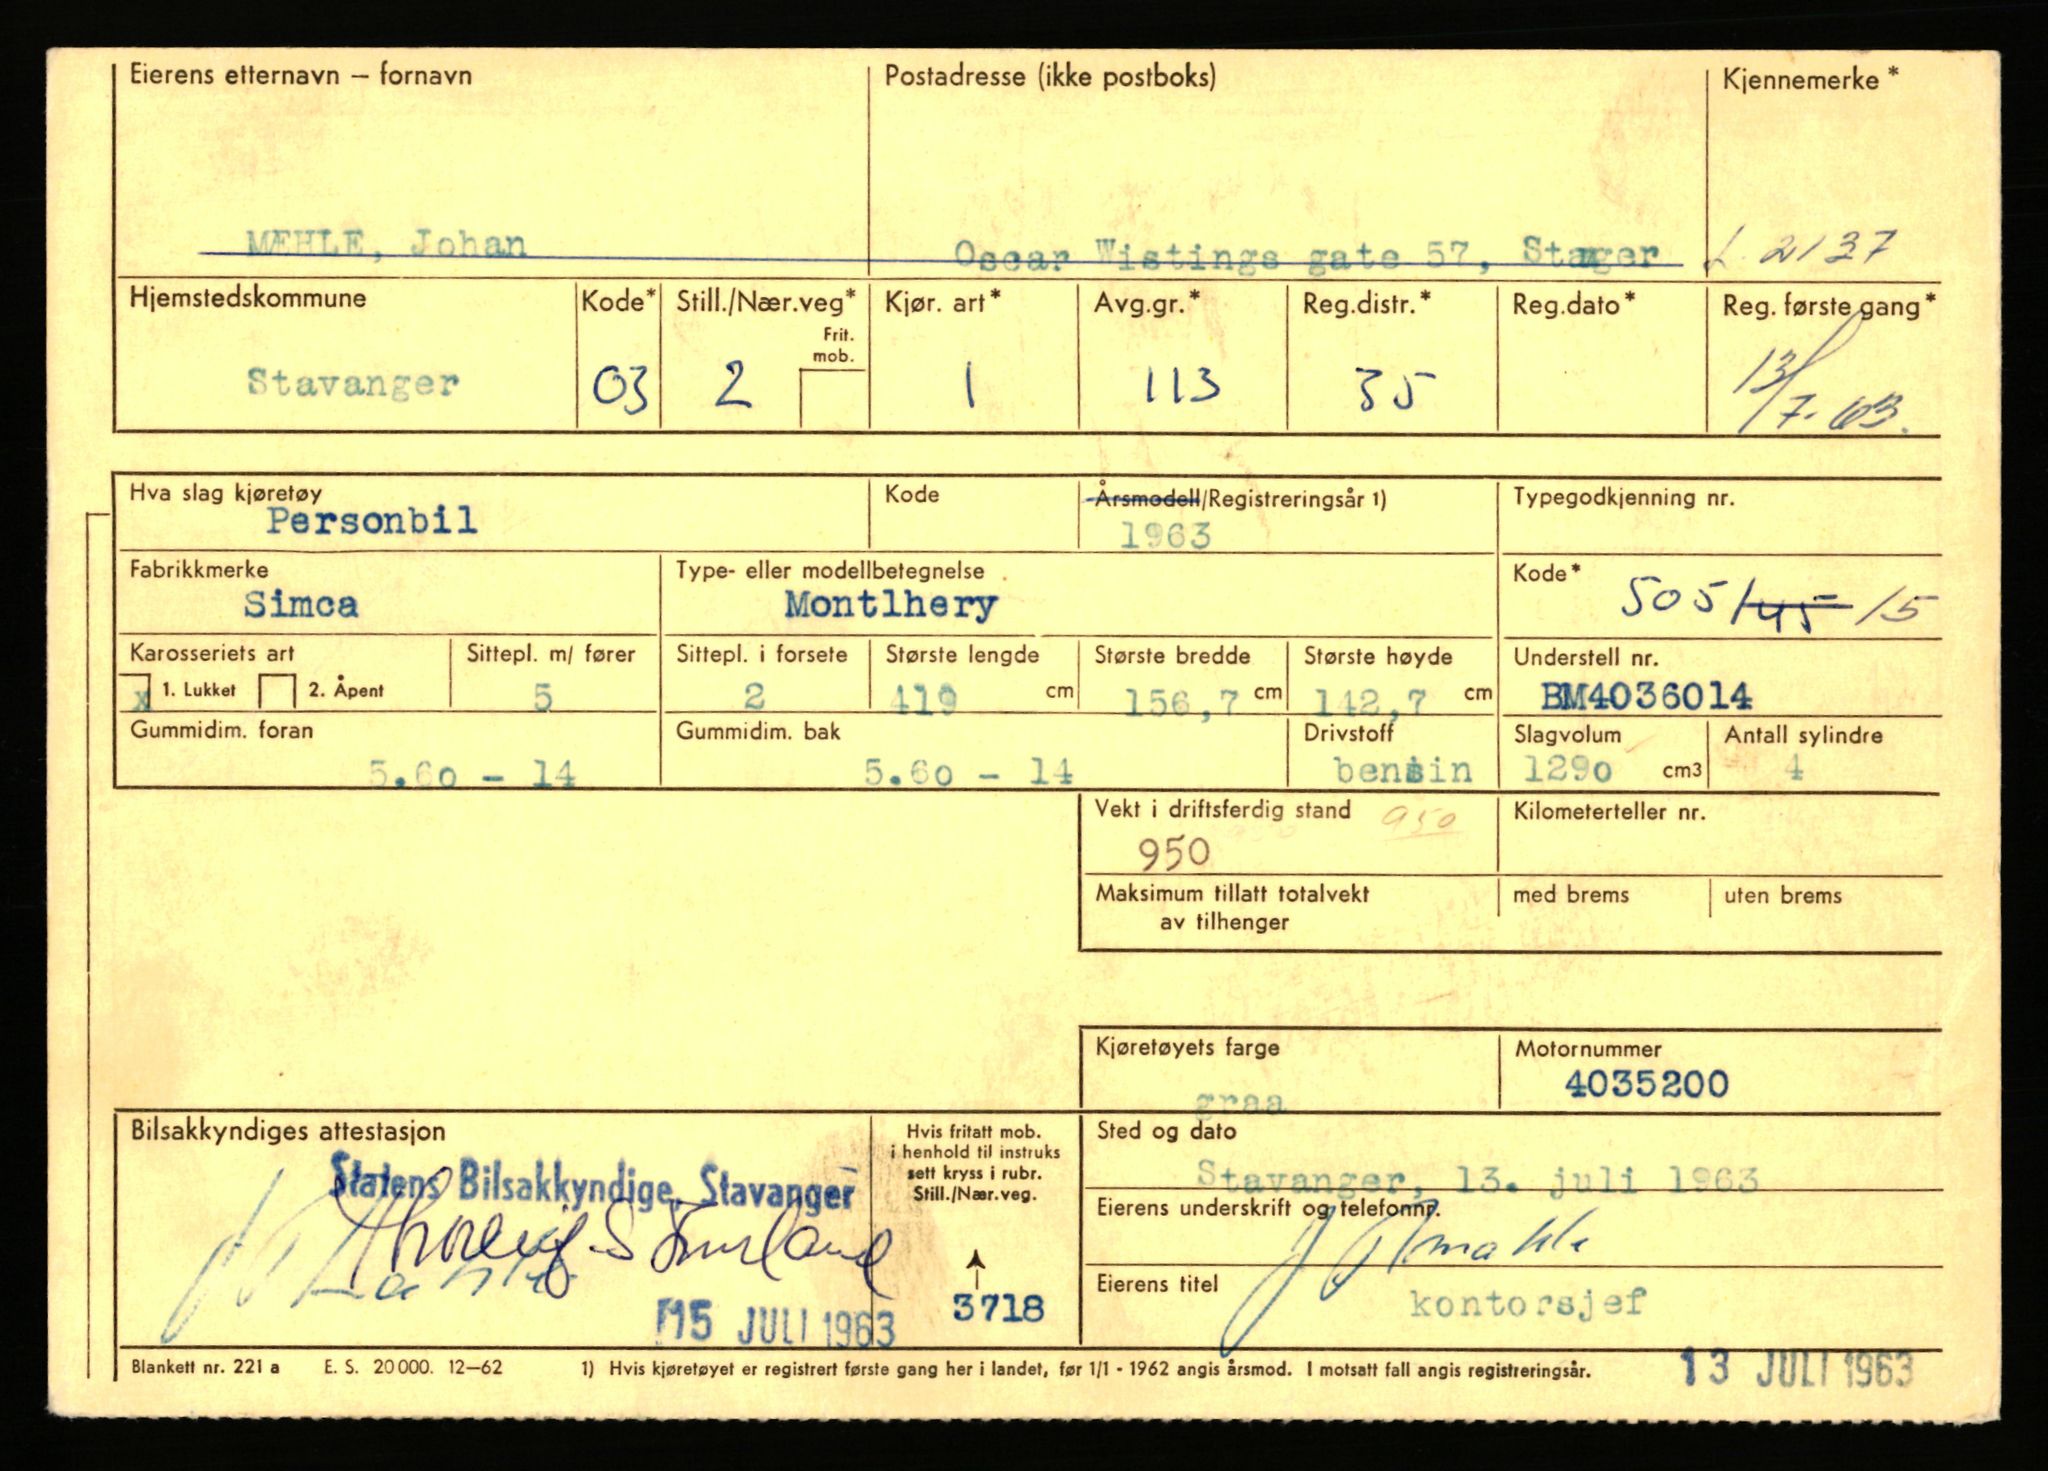 Eierens etternavn – fornavn
Postadresse (ikke postboks)
Kjennemerke*
MÆHLE, Johan
Oscar Wistings gate 57, Stager
L. 2137
Hjemstedskommune
Kode*
Still./Nær.veg*
Kjør. art*
Avg.gr.*
Reg.distr.*
Reg.dato*
Reg. første gang*
Frit.
mob.
Stavanger
03
2
1
113
35
13/7-63.
Hva slag kjøretøy
Kode
Årsmodell/Registreringsår 1)
Typegodkjenning nr.
Personbil
1963
Fabrikkmerke
Type- eller modellbetegnelse
Kode*
Simca
Montlhery
505/45/5
Karosseriets art
Sittepl. m/ fører
Sittepl. i forsete
Største lengde
Største bredde
Største høyde
Understell nr.
x 1. Lukket
2. Åpent
5
2
419 cm
156,7 cm
142,7 cm
BM4036014
Gummidim. foran
Gummidim. bak
Drivstoff
Slagvolum
Antall sylindre
5.60 - 14
5.60 - 14
bensin
1290 cm3
4
Vekt i driftsferdig stand 950
Kilometerteller nr.
950
Maksimum tillatt totalvekt
med brems
uten brems
av tilhenger
Kjøretøyets farge
Motornummer
graa
4035200
Bilsakkyndiges attestasjon
Hvis fritatt mob.
i henhold til instruks
sett kryss i rubr.
Still./Nær.veg.
Sted og dato
Statens Bilsakkyndige, Stavanger
Stavanger, 13. juli 1963
Eierens underskrift og telefonnr.
Eierens titel
kontorsjef
3718
15 JULI 1963
Blankett nr. 221 a
E. S. 20 000. 12–62
1) Hvis kjøretøyet er registrert første gang her i landet, før 1/1 - 1962 angis årsmod. I motsatt fall angis registreringsår.
13 JULI 1963